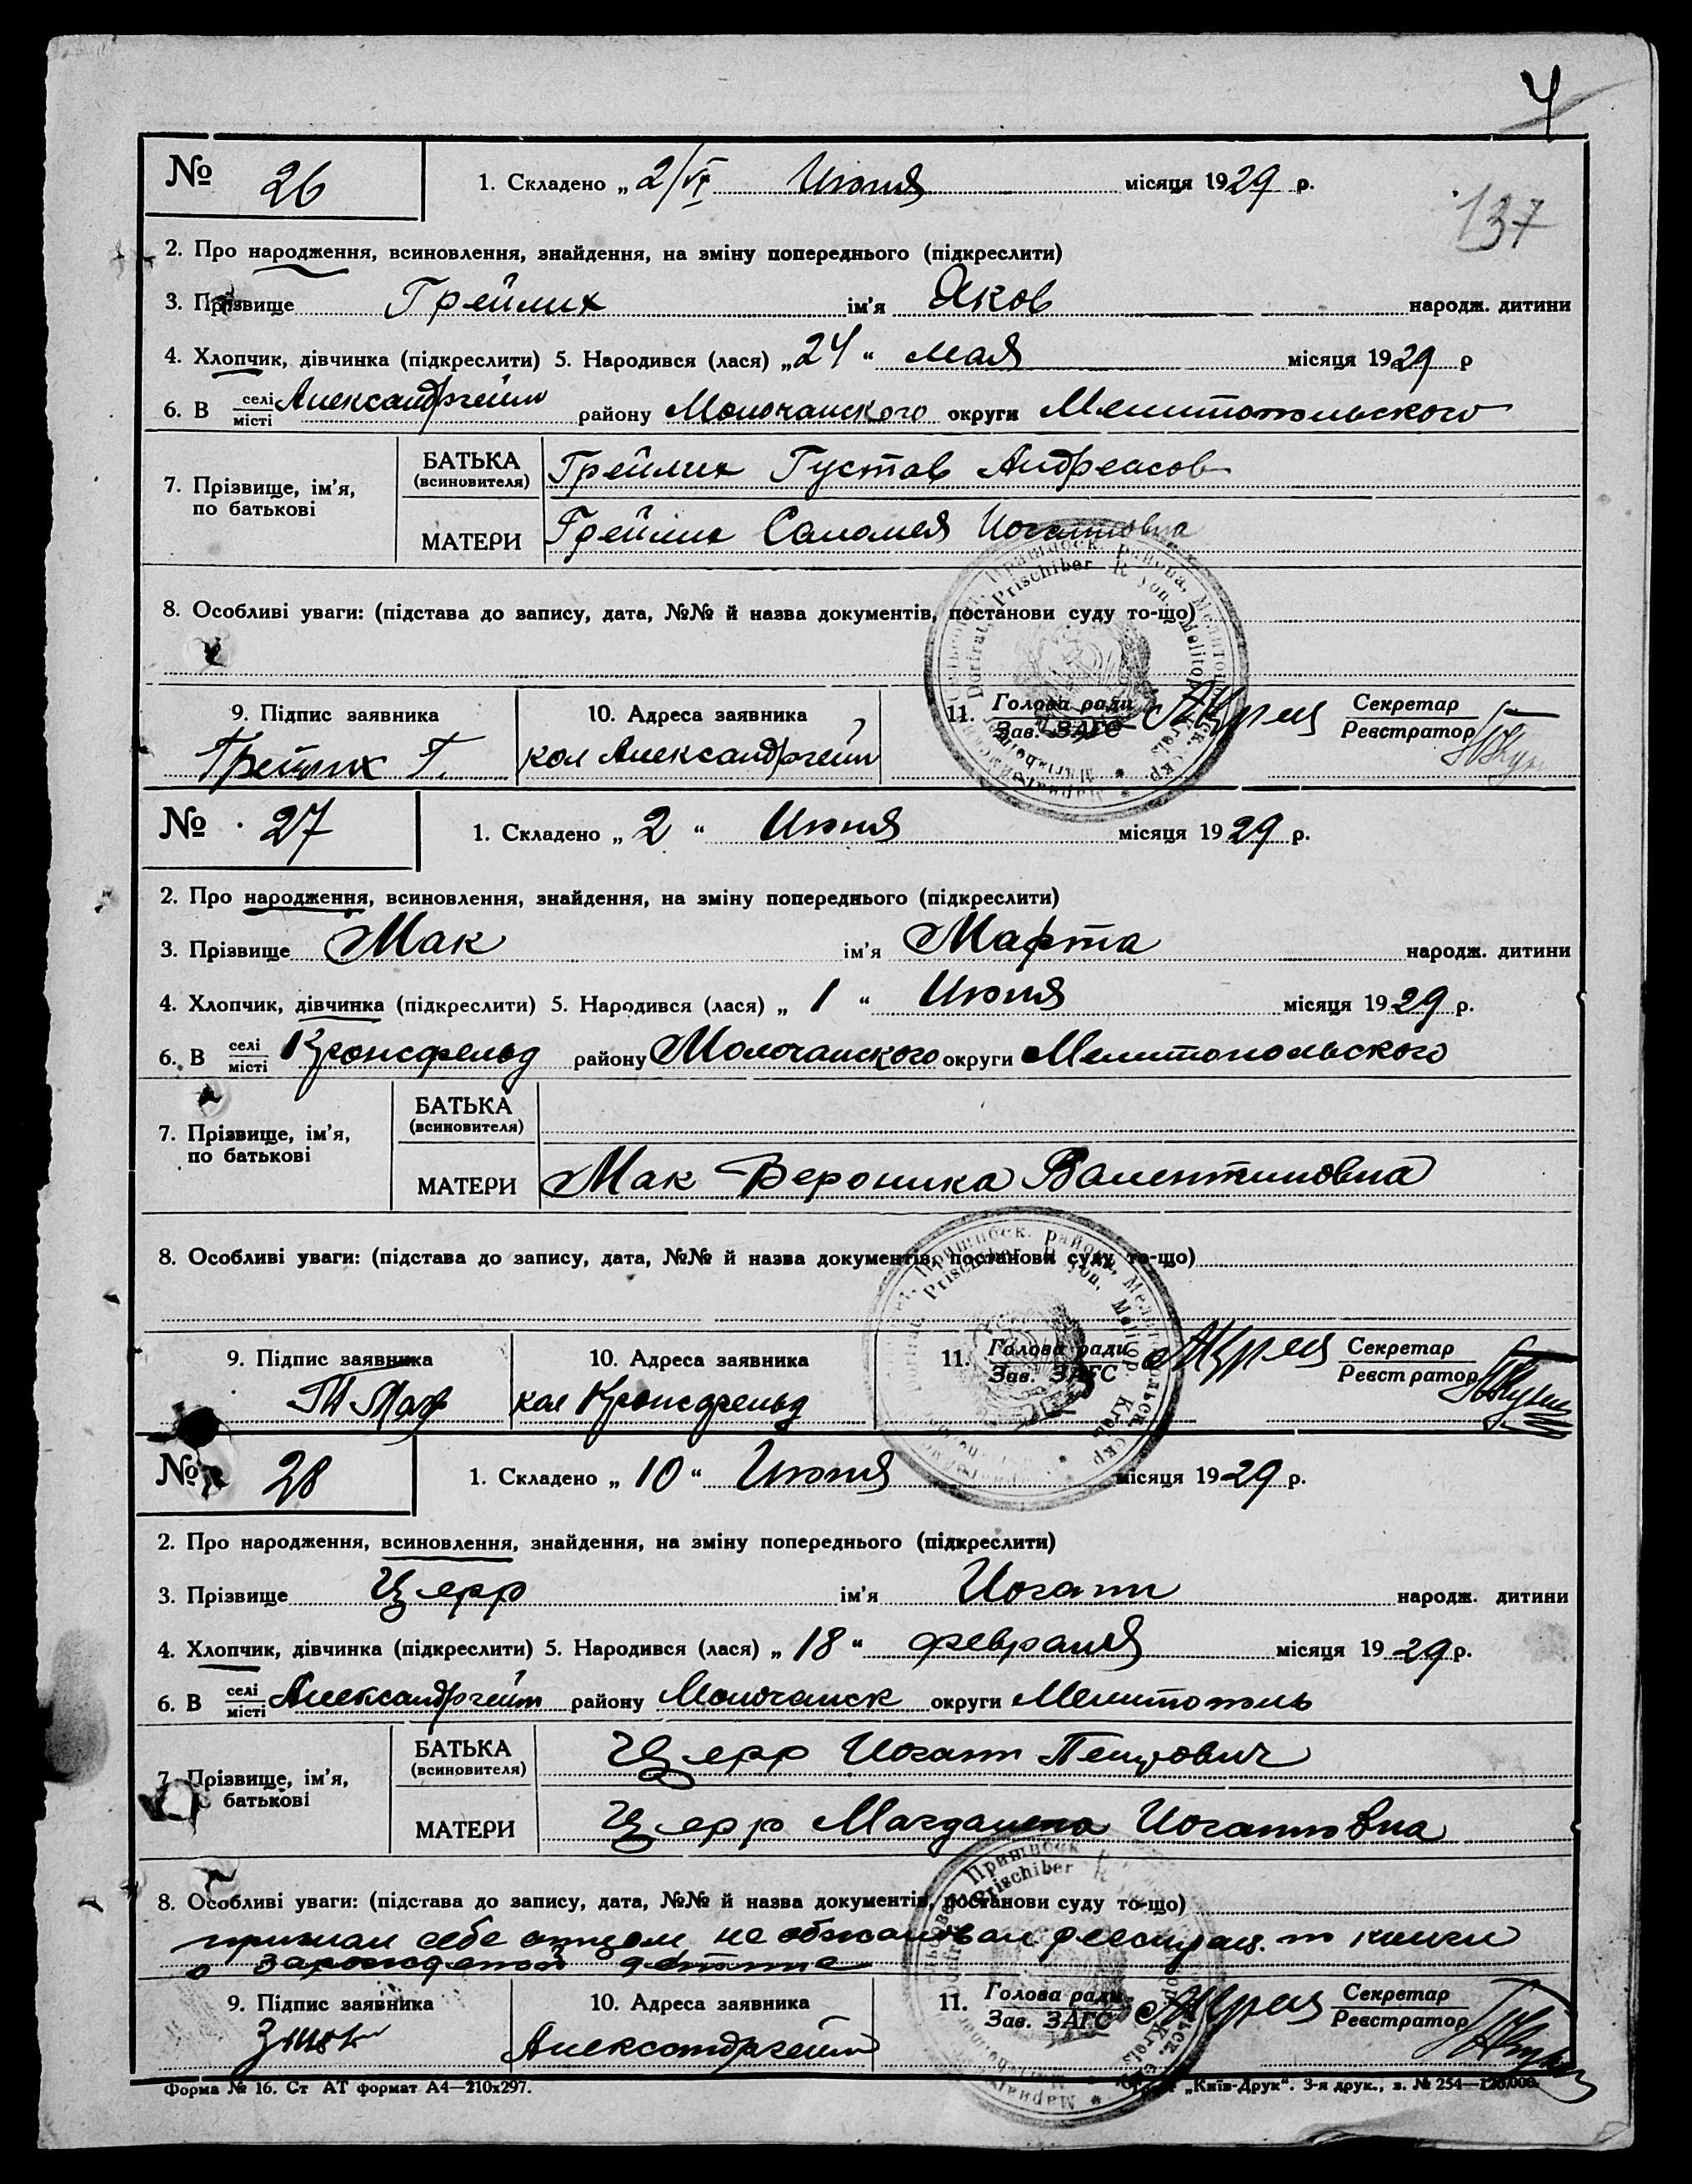 4
№ 26 1. Складено „ 2/VI Июня місяця 1929 р.
137
2. Про народження, всиновлення, знайдення, на зміну попереднього (підкреслити)
3. Прізвище Грейлих ім'я Яков народж. дитини
4. Хлопчик, дівчинка (підкреслити) 5. Народився (лася) „24“ мая місяця 1929 р
6. В селі/місті Александргейм району Молочанского округи Мелитопольского
7. Прізвище, ім'я, по батькові
БАТЬКА (всиновителя) Грейлих Густав Андреасов
МАТЕРИ Грейлих Саломея Иоганновна
8. Особливі уваги: (підстава до запису, дата, №№ й назва документів, постанови суду то-що)
9. Підпис заявника 10. Адреса заявника 11. Голова ради Секретар
Зав. ЗАГС Реєстратор
Грейлих Г. кол Александргейм
№ 27 1. Складено „ 2 “ Июня місяця 1929 р.
2. Про народження, всиновлення, знайдення, на зміну попереднього (підкреслити)
3. Прізвище Мак ім'я Марта народж. дитини
4. Хлопчик, дівчинка (підкреслити) 5. Народився (лася) „ 1 “ Июня місяця 1929 р.
6. В селі/місті Кронсфельд району Молочанского округи Мелитопольского
7. Прізвище, ім'я, по батькові
БАТЬКА (всиновителя)
МАТЕРИ Мак Вероника Валентиновна
8. Особливі уваги: (підстава до запису, дата, №№ й назва документів, постанови суду то-що)
9. Підпис заявника 10. Адреса заявника 11. Голова ради Секретар
Зав. ЗАГС Реєстратор
кол Кронсфельд
№ 28 1. Складено „ 10 “ Июня місяця 1929 р.
2. Про народження, всиновлення, знайдення, на зміну попереднього (підкреслити)
3. Прізвище Церр ім'я Иоганн народж. дитини
4. Хлопчик, дівчинка (підкреслити) 5. Народився (лася) „ 18 “ февраля місяця 1929 р.
6. В селі/місті Александргейм району Молочанск округи Мелитополь
7. Прізвище, ім'я, батькові
БАТЬКА (всиновителя) Церр Иоганн Петрович
МАТЕРИ Церр Магдалена Иоганновна
8. Особливі уваги: (підстава до запису, дата, №№ й назва документів, постанови суду то-що)
признал себе отцом не обжаловал
о
9. Підпис заявника 10. Адреса заявника 11. Голова ради Секретар
Зав. ЗАГС Реєстратор
Александргейм
Форма № 16. Ст АТ формат А4—210х297. „Київ-Друк“. 3-я друк., з. № 254—